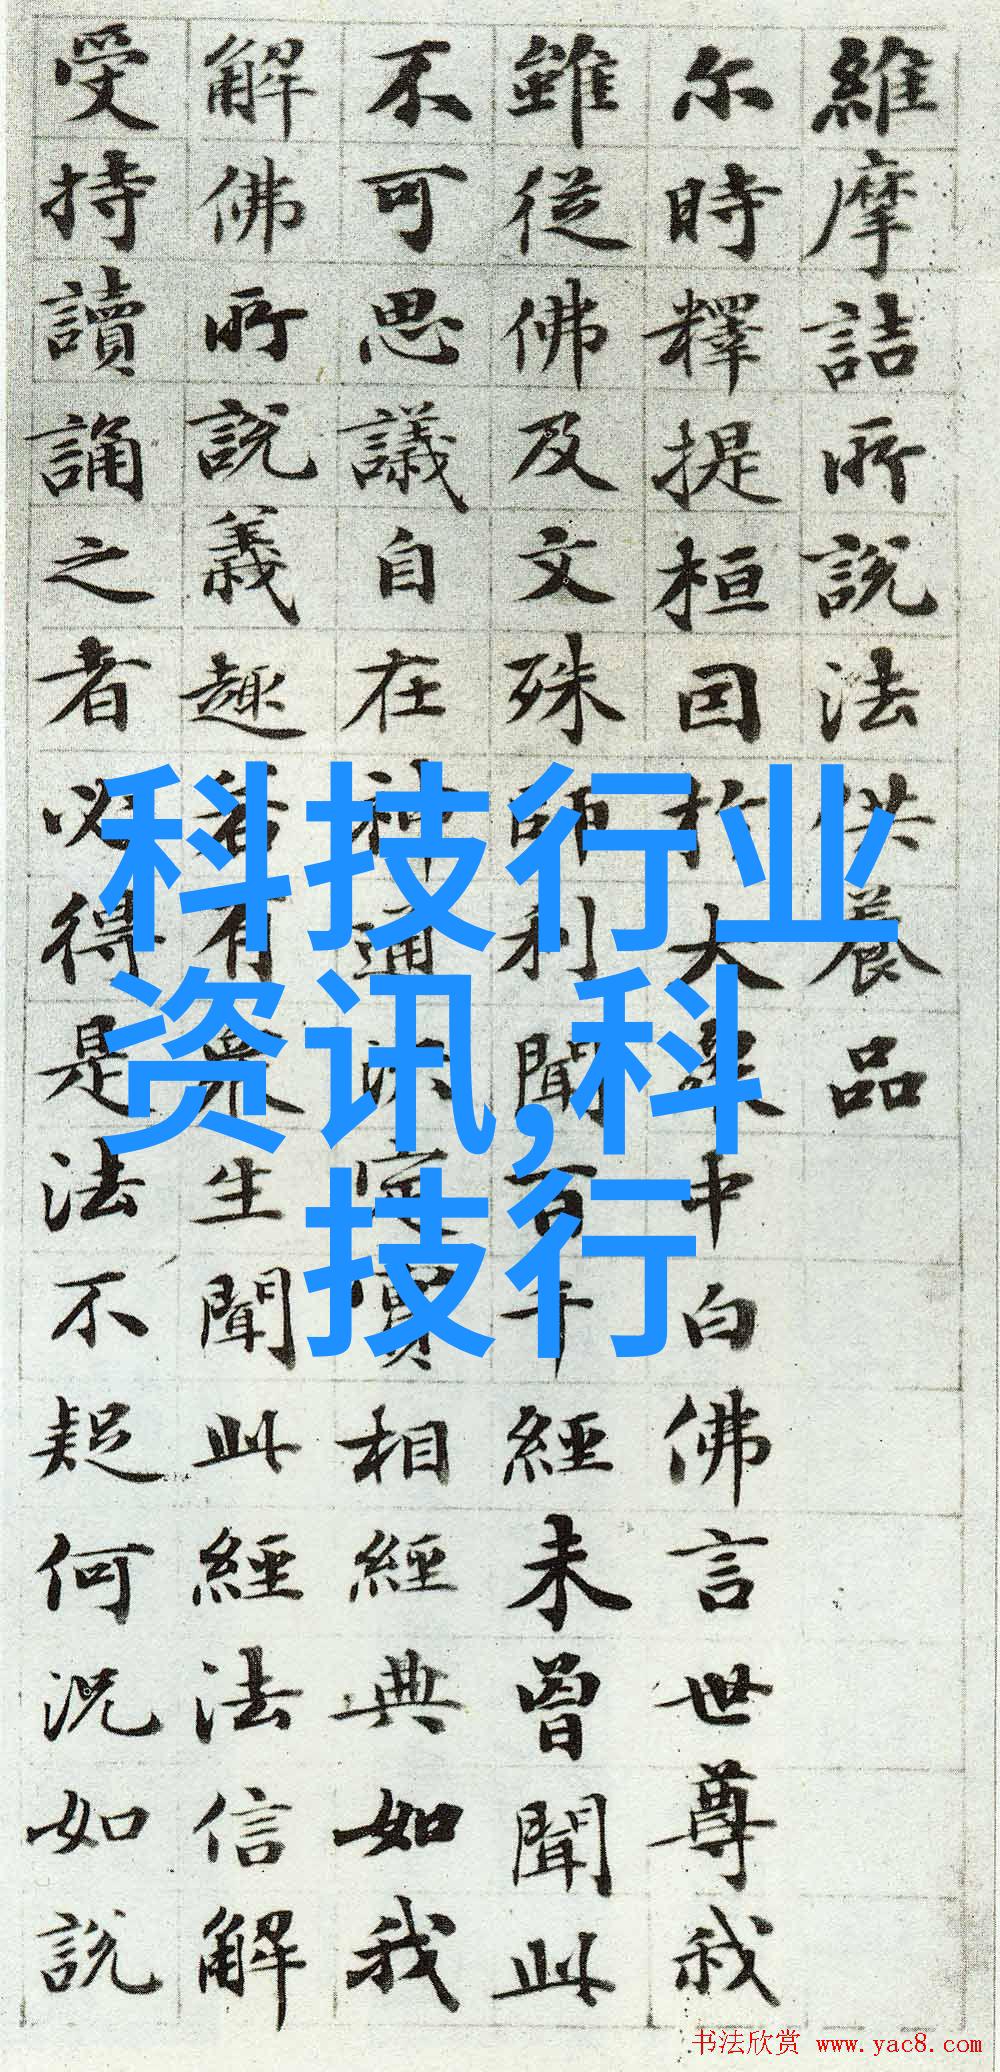 維摩詰所說法供養品
尔時釋提桓因扵大眾中白佛言世尊我
雖從佛及文殊師利聞百千經未曾聞此
不可思議自在神通决定實相經典如我
解佛所說義趣若有眾生聞此經法信解
受持讀誦之者必得是法不疑何況如說
科技行业
资讯,科
技行
书法欣赏 www.yac8.com